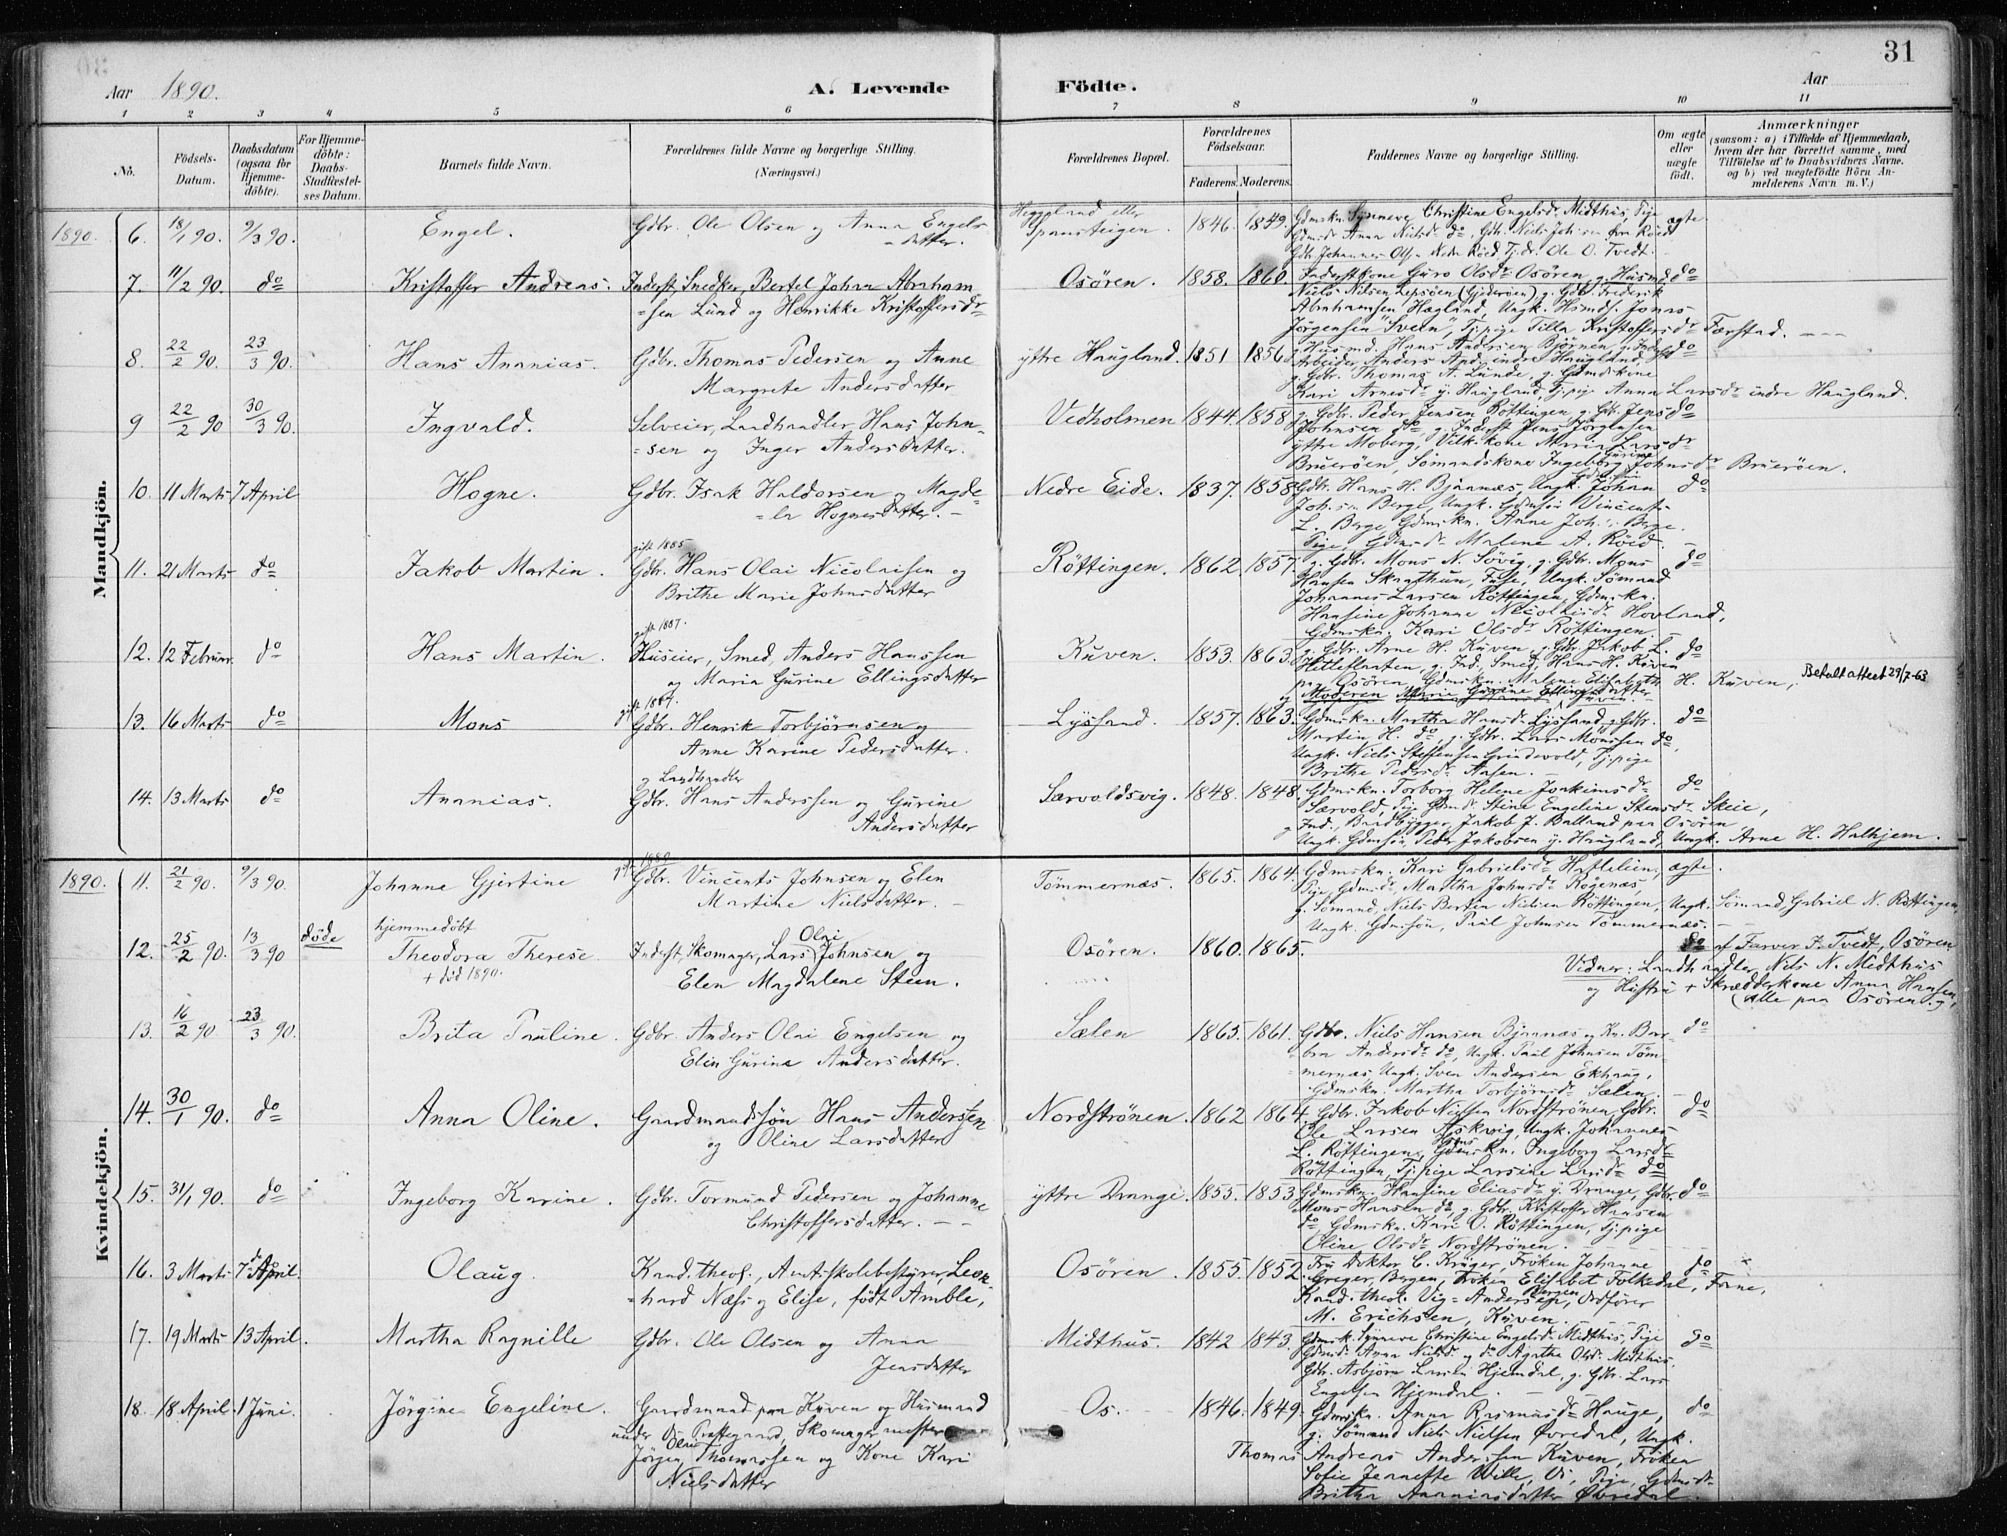 31
Aar 1890. A. Levende Födte. Aar
1 2 3 4 5 6 7 8 9 10 11
No. Födsels-Datum. Daabsdatum (ogsaa for Hjemme-döbte). For Hjemme-döbte: Daabs-Stadfæstel-ses Datum. Barnets fulde Navn. Forældrenes fulde Navne og borgerlige Stilling. (Næringsvei.) Forældrenes Bopæl. Forældrenes Födselsaar. Faderens. Moderens. Faddernes Navne og borgerlige Stilling. Om ægte eller uægte födt. Anmærkninger (saasom: a) i Tilfælde af Hjemmedaab, hvem der har forrettet samme, med Tilföielse af to Daabsvidners Navne. og b) ved uægtefödte Börn An-melderens Navn m. V.)
Mandkjön.
1890. 6. 18/1 90. 9/3 90. Engel. Gdbr. Ole Olsen og Anna Engels-
=datter. Heggeland eller Spansteigen. 1846. 1849. Gdmskn. Synneve Christine Engelsdr Midthus, Pige
Gdmsdr Anna Nielsdr do, Gdbr. Niels Joh
ægte
7. 11/2 90. do Kristoffer Andreas. Inderst, Snedker, Bertel Johan Abraham-
=sen Lund og Henrikke Kristoffersdr Osören. 1858. 1860. Inderstkone Guro Olsdr Osören, g. Husmd do
Niels Nilsen Lepsöen (Gjderöen), g. Gdbr. Frederik
Abrahamsen Hægland, Ungk. Hsmds. Jonas
Jörgensen Svein, Tj.pige Tilla Kristoffersdr Færstad.
8. 22/2 90. 23/3 90. Hans Ananias. Gdbr. Thomas Pedersen og Anne
Margrete Andersdatter ytre Haugland. 1851 1856 g. Husmd. Hans Andersen Björnen, Inderst do
Arbeider Anders And. indre Haugland,
g. Gdbr. Thomas A. Lunde, g. Gdmdskone
Kari Arnesdr y. Haugland, Tj.pige Anna Larsdr indre Haugland.
9 22/2 90 30/3 90. Ingvald. Selveier, Landhandler Hans John-
=sen og Inger Andersdatter. Vedholmen 1844. 1858 g. Gdbr. Peder Jensen Röttingen, g. Gbr. Jens do
Johnsen do, g. Inderst Jens Jörgensen
ytre Moberg, Vilk. kone Maria Larsdr
Brueröen, Sömandskone Ingeborg Gurine Johnsdr Brueröen.
10. 11 Marts 7 April Hogne. Gdbr. Isak Haldorsen og Magde-
=le Hognesdatter. Nedre Eide. 1837. 1858 Gdbr. Hans H. Bjånæs, Ungk. Gdmsön Johan do
Joh.sen Berge, Ungk. Gdmsön Vincents
L. Berge, Gdmskn. Anne Joh. Berge.
Pige, Gdmsdr Malene A. Röed.
11. 21 Marts do Jakob Martin. gift 1885
Gdbr. Hans Olai Nicolaisen og
Brithe Marie Johnsdatter Röttingen. 1862. 1857. g. Gdbr. Mons N. Sövig, g. Gdbr. Mons do
Hansen Skrathun, Fuse, Ungk. Sömand
Johannes Larsen Röttingen, Gdmskn.
Hansine Johanne Nicolaisdr Hovland,
Gdmskn. Kari Olsdr Röttingen.
12. 12 Februar. do Hans Martin. gift 1887.
Huseier, Smed, Anders Hanssen
og Maria Gurine Ellingsdatter Kuven. 1853. 1863. g. Gdbr. Arne H. Kuven, g. Gdbr. Jakob L. do
Hetleflaaten, g. Ind. Smed, Hans H. Kuven
paa Osören, Gdmskn. Malene Elisabeth H. Kuven,
og Moderen Marie Gurine Ellingsdatter
Betalt attest 29/7-63
13. 16 Marts do Mons gift 1889.
Gdbr. Henrik Torbjörnsen og
Anne Karine Pedersdatter. Lysland. 1857. 1863. Gdmskn. Martha Hansdr Lysland, g. Gdbr. do
Martin H. do, g. Gdbr. Lars Monssen do,
Ungk. Niels Steffensen Grindevold, Tj.pige
Brithe Pedersdr Aasen.
14. 13 Marts do Ananias. og Landhandler
Gdbr. Hans Anderssen og Gurine
Andersdatter Særvoldsvig. 1848. 1848. Gdmskn. Torborg Helene Joakimsdr do
Særvold, Pige Gdmsdr Stine Engeline Stensdr Skeie,
g. Ind., Baadbygger, Jakob J. Balland paa Osören
Ungk. Gdmsön Peder Jakobsen y. Haugland, Ungk. Arne H. Halhjem.
Kvindekjön.
1890. 11. 21/2 90. 9/3 90. Johanne Gjertine gift 1889
Gdbr. Vincents Johnsen og Elen
Martine Nielsdatter. Tömmernæs. 1865. 1864. Gdmskn. Kari Gabrielsdr Hatlelein, ægte.
Pige, Gdmsdr, Martha Johnsdr Rögenæs,
g. Sömand, Niels Bertin Nielsen Röttingen, Ungk. Sömand, Gabriel N. Röttingen,
Ungk. Gdmsön, Paul Johnsen Tömmernæs.
12. 25/2 90. 13/3 90 döde hjemmedöbt
Theodora Therese.
+ död 1890. Inderst, Skomager, Lars Olai Johnsen og
Elen Magdalene Steen. Osören. 1860. 1865. do af Farver F. Tvedt, Osören
Vidner: Landhandler Nils N. Midthus
og Hustru + Skrædderkone Anna Hansen,
(Alle paa Osören.)
13. 16/2 90 23/3 90. Brita Pauline. Gdbr. Anders Olai Engelsen og
Elen Gurine Andersdatter. Sælen 1865. 1861. Gdbr. Niels Hansen Bjaanæs og Kn. Bar- do
=bra Andersdr do, Ungk. Paul Johnsen Töm-
=mernæs, Ungk. Sven Andersen Ekhaug,
Gdmskn. Martha Torbjörnsdr Sælen.
14. 30/1 90. do Anna Oline. Gaardmandssön Hans Andersen
og Oline Larsdatter Nordströnen. 1862 1864. Gdbr. Jakob Nielsen Nordströnen, Gdbr. do
Ole Larsen Askvig, Ungk. Johannes
L. Röttingen, Gdmskn. Ingeborg Larsdr
Röttingen, Tj.pige Larsine Larsdr do
15. 31/1 90. do Ingeborg Karine. Gdbr. Tormund Pedersen og Johanne
Christoffersdatter. ytre Drange. 1855. 1853 Gdmskn. Hansine Eliasdr y. Drange, Gdbr. do
Mons Hansen do, g. Gdbr. Kristoffer Hansen
do, Gdmskn. Kari O. Röttingen, Tj.pige
Oline Olsdr Nordströnen.
16. 3 Marts 7d April. Olaug. Kand. theol., Amtsskolebestyrer, Leon-
=hard Næss og Elise, født Amble, Osören. 1855. 1852. Fru Doktor C. Krüger, Fröken Johanne do
Greger, Bergen, Fröken Elisabet Folkedal, Fane,
Kand. theol. Vig-Andersen, Bergen, Ordförer
M. Erichsen, Kuven.
17. 19 Marts 13 April. Martha Ragnille Gdbr. Ole Olsen og Anna
Jensdatter Midthus. 1842 1843. Gdmsk. Synneve Christine Engelsdr. Midthus, Pige do
Gdmsdr Anna Nielsdr og do Agathe Olsdr Midthus.
Gdbr. Asbjörn Larsen Hjemdal, g. Gdbr. Lars
Engelsen Hjemdal.
18. 18 April. 1 Juni. Jörgine Engeline. Gaardmand paa Kuven og Husmand
under Os Præstegaard, Skomagermester
Jörgen Olai Thomassen og Kone Kari
Nielsdatter Os. 1846. 1849. Gdmskn. Anna Rasmusdr Hauge, do
g. Sömand Niels Nielsen Övredal, Ungk.
Thomas Andreas Anderssen Kuven, Fröken
Sofie Jeanette Wille, Os, Pige, Gdmsdr
Britha Ananiasdatter Övredal.